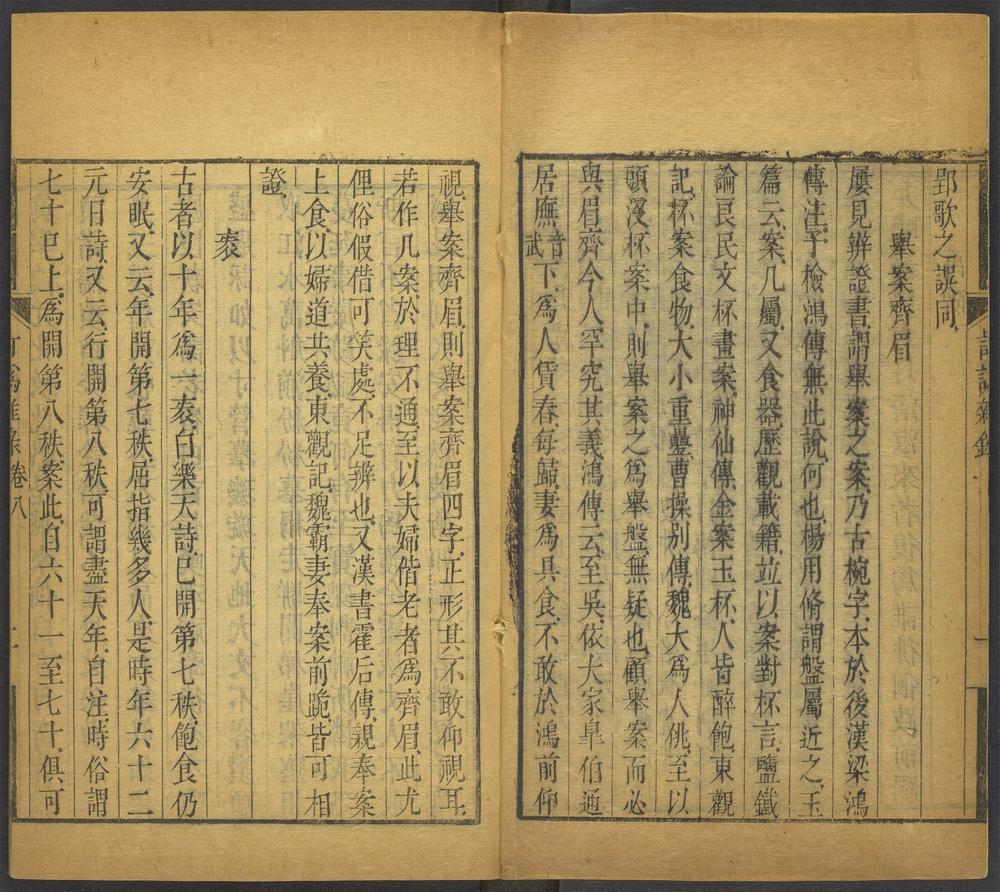 郢歌之誤同
舉案齊眉
屢見辨證書謂舉案之案乃古椀字本於後漢梁鴻
傳注予檢鴻傳無此說何也楊用脩謂盤屬近之玉
篇云案几屬又食器歷觀載籍竝以案對杯言鹽鐵
論良民文杯畫案神仙傳金案玉杯人皆醉飽東觀
記杯案食物大小重疊曹操別傳魏大為人佻至以
頭沒杯案中則舉案之為舉盤無疑也顧舉案而必
與眉齊今人罕究其義鴻傳云至吳依大家臯伯通
居廡音武下為人賃舂每歸妻為具食不敢於鴻前仰
視舉案齊眉則舉案齊眉四字正形其不敢仰視耳
若作几案於理不通至以夫婦偕老者為齊眉此尤
俚俗假借可笑處不足辨也又漢書霍后傳親奉案
上食以婦道共養東觀記魏霸妻奉案前跪皆可相
證
袠
古者以十年為一袠白樂天詩已開第七秩飽食仍
安眠又云年開第七秩屈指幾多人是時年六十二
元日詩又云行開第八秩可謂盡天年自注時俗謂
七十已上為開第八秩案此自六十一至七十俱可
卷八